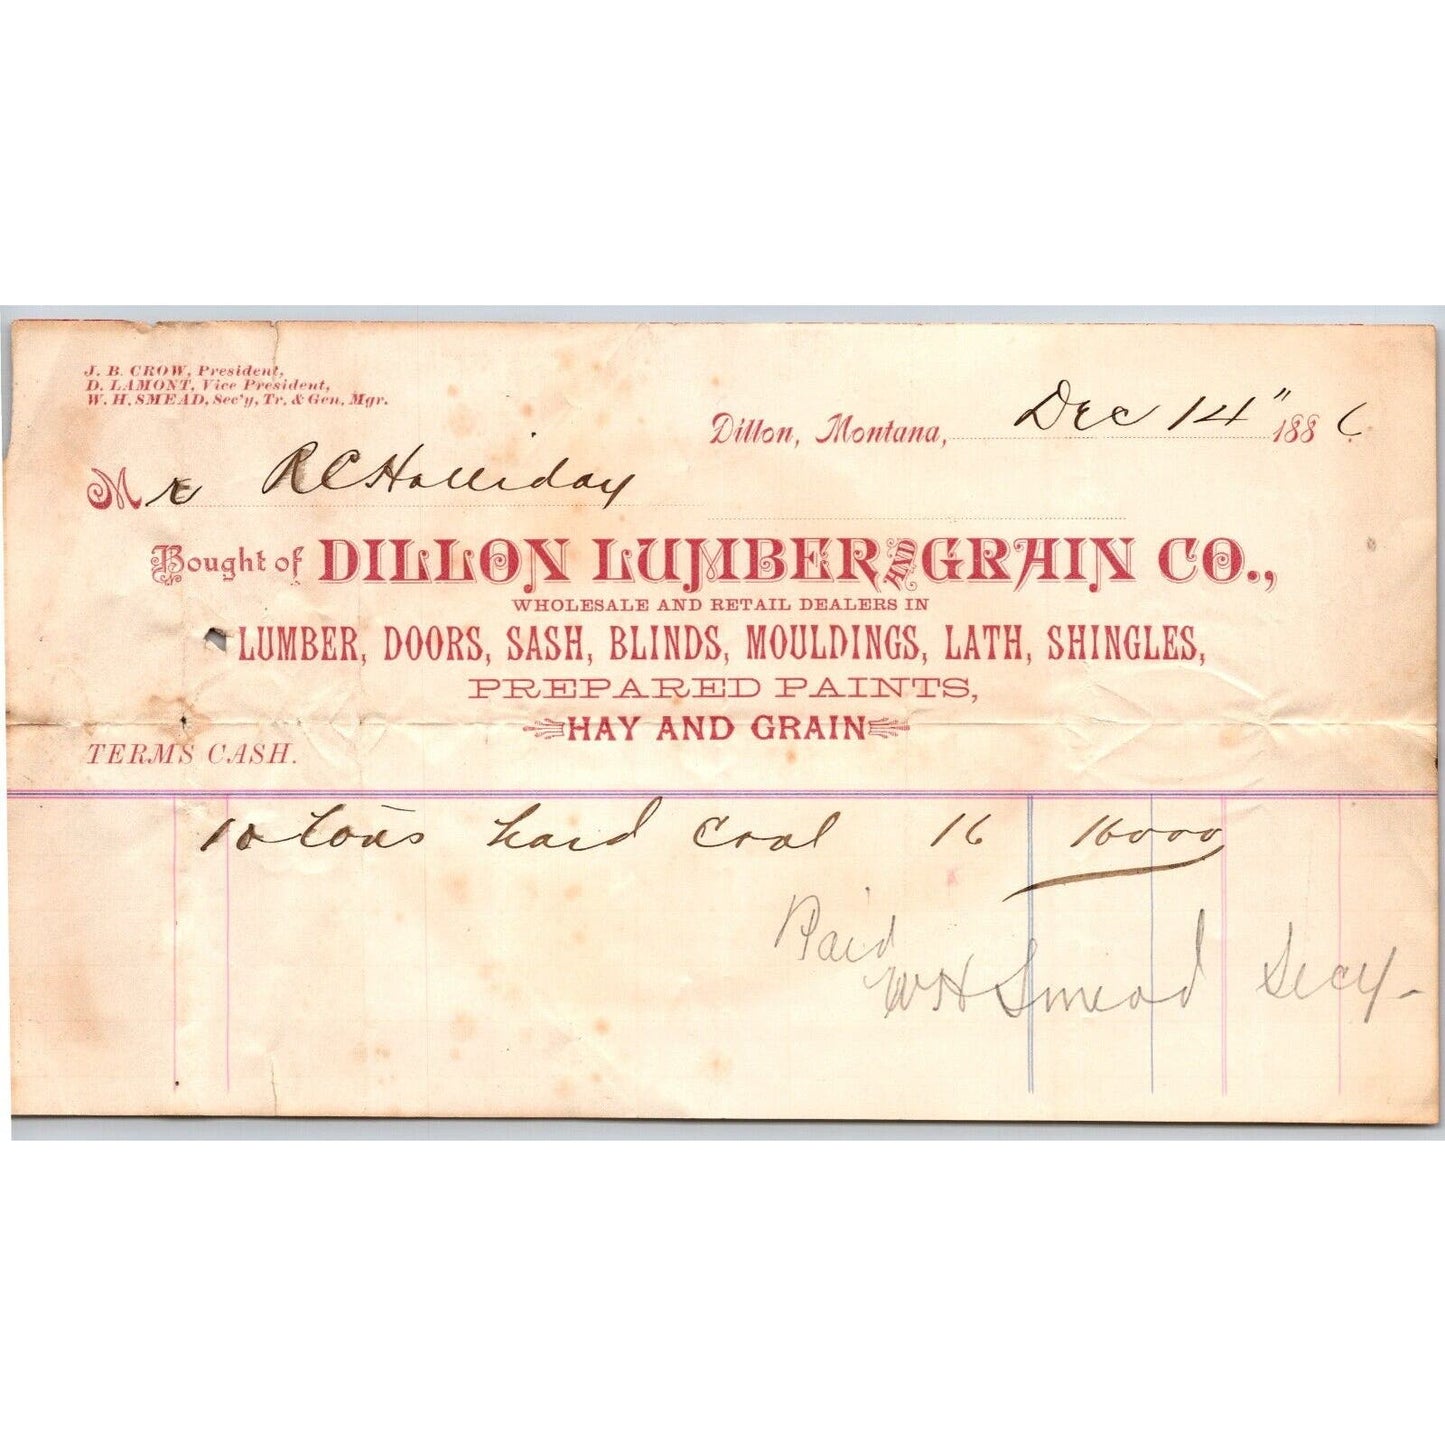 J. B. CROW, President,
D. LAMONT, Vice President,
W. H. SMEAD, Sec'y, Tr. & Gen. Mgr.
Dillon, Montana, Dec 14" 1886
Mr R C Holliday
Bought of DILLON LUMBER AND GRAIN CO.,
WHOLESALE AND RETAIL DEALERS IN
LUMBER, DOORS, SASH, BLINDS, MOULDINGS, LATH, SHINGLES,
PREPARED PAINTS,
HAY AND GRAIN
TERMS CASH.
10 tons hard Coal 16 160 00
Paid
W H Smead Secy-